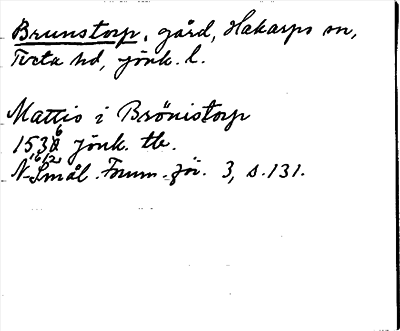 Brunstorp, gård, Hakarps sn,
Tveta hd, jönk. l.
Mattis i Brönistorp
1536 jönk. tb.
16/2
N. Smål. Fornm.för. 3, s. 131.